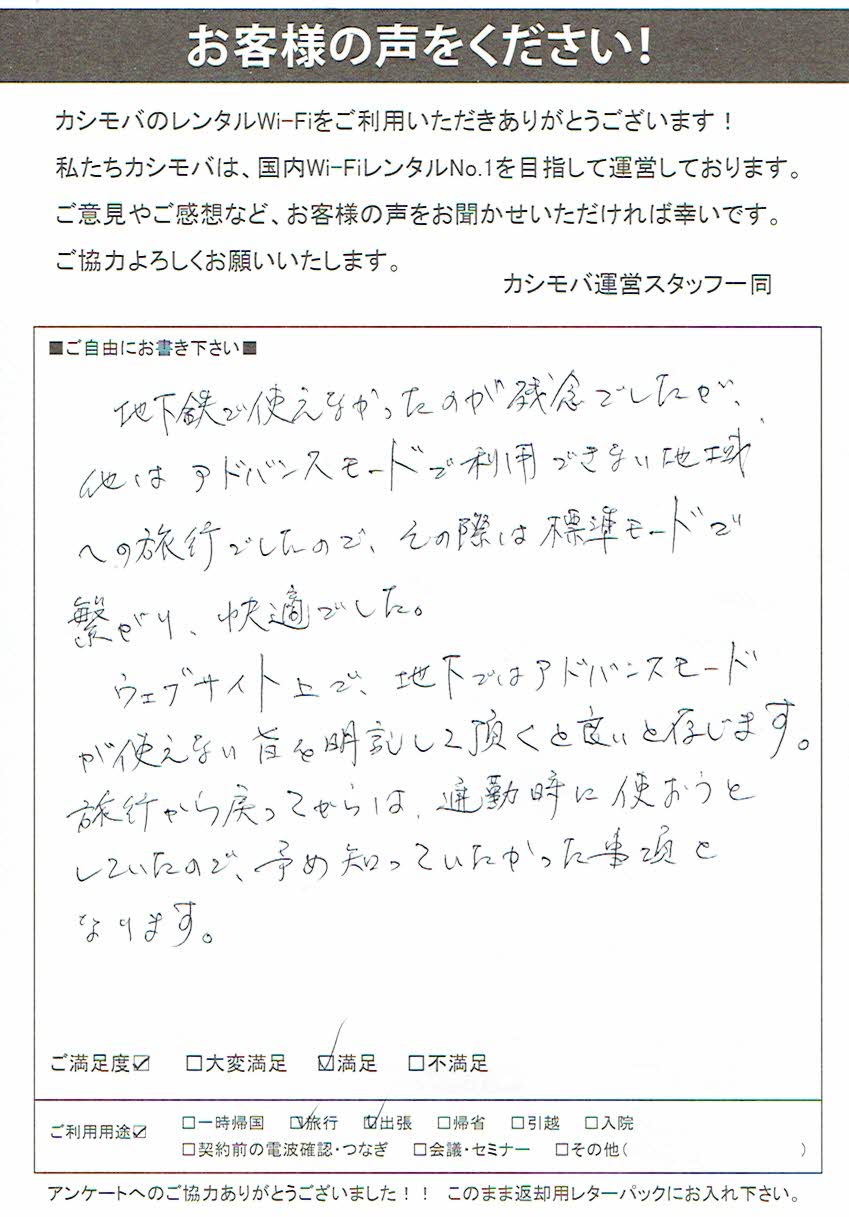 お客様の声をください!
カシモバのレンタルWi-Fiをご利用いただきありがとうございます！
私たちカシモバは、国内Wi-FiレンタルNo.1を目指して運営しております。
ご意見やご感想など、お客様の声をお聞かせいただければ幸いです。
ご協力よろしくお願いいたします。
カシモバ運営スタッフ一同
■ご自由にお書き下さい■
地下鉄で使えなかったのが残念でしたが、
他はアドバンスモードで利用できない地域
への旅行でしたので、その際は標準モードで
繋がり、快適でした。
ウェブサイト上で、地下ではアドバンスモード
が使えない旨を明記して頂くと良いと存じます。
旅行から戻ってからは、通勤時に使おうと
していたので、予め知っていたかった事項と
なります。
ご満足度☑ □大変満足 ☑満足 □不満足
ご利用用途☑ □一時帰国 ☑旅行 ☑出張 □帰省 □引越 □入院
□契約前の電波確認・つなぎ □会議・セミナー □その他( )
アンケートへのご協力ありがとうございました！！ このまま返却用レターパックにお入れ下さい。